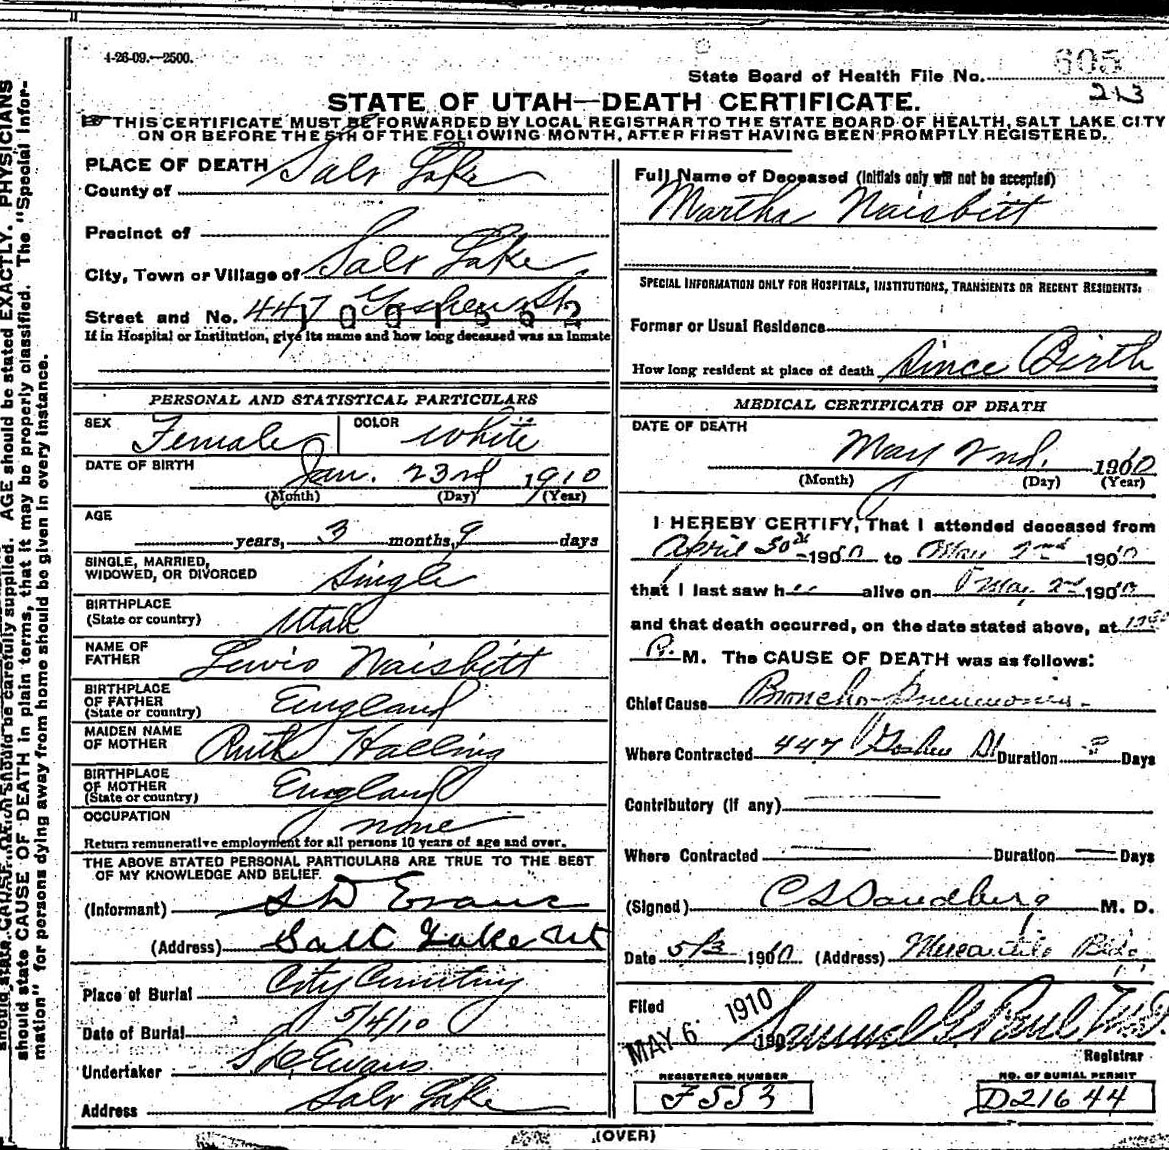 4-26-09.—2500.
State Board of Health File No. 605
213
STATE OF UTAH—DEATH CERTIFICATE.
THIS CERTIFICATE MUST BE FORWARDED BY LOCAL REGISTRAR TO THE STATE BOARD OF HEALTH, SALT LAKE CITY
ON OR BEFORE THE 5TH OF THE FOLLOWING MONTH, AFTER FIRST HAVING BEEN PROMPTLY REGISTERED.
PLACE OF DEATH
County of Salt Lake
Precinct of
City, Town or Village of Salt Lake
Street and No. 447 Goshen St.
If in Hospital or Institution, give its name and how long deceased was an inmate
PERSONAL AND STATISTICAL PARTICULARS
SEX Female COLOR White
DATE OF BIRTH Jan. 23rd 1910
(Month) (Day) (Year)
AGE
years, 3 months, 9 days
SINGLE, MARRIED,
WIDOWED, OR DIVORCED Single
BIRTHPLACE
(State or country) Utah
NAME OF
FATHER Lewis Naisbitt
BIRTHPLACE
OF FATHER
(State or country) England
MAIDEN NAME
OF MOTHER Ruth Halling
BIRTHPLACE
OF MOTHER
(State or country) England
OCCUPATION none
Return remunerative employment for all persons 10 years of age and over.
THE ABOVE STATED PERSONAL PARTICULARS ARE TRUE TO THE BEST
OF MY KNOWLEDGE AND BELIEF.
(Informant) S D Evans
(Address) Salt Lake Ut
Place of Burial City Cemetery
Date of Burial 5/4/10
Undertaker S D Evans
Address Salt Lake
Full Name of Deceased (Initials only will not be accepted)
Martha Naisbitt
SPECIAL INFORMATION ONLY FOR HOSPITALS, INSTITUTIONS, TRANSIENTS OR RECENT RESIDENTS:
Former or Usual Residence
How long resident at place of death Since Birth
MEDICAL CERTIFICATE OF DEATH
DATE OF DEATH
May 2nd. 1910
(Month) (Day) (Year)
I HEREBY CERTIFY, That I attended deceased from
April 30th 1910 to May 2nd 1910
that I last saw her alive on May 2nd 1910
and that death occurred, on the date stated above, at
P. M. The CAUSE OF DEATH was as follows:
Chief Cause Broncho-Pneumonia.
Where Contracted 447 Goshen St Duration ? Days
Contributory (if any)
Where Contracted Duration Days
(Signed) C S Sandberg M. D.
Date 5/3 1910 (Address) Mercantile Bldg
Filed
MAY 6 1910 190 Samuel G. Paul
Registrar
REGISTERED NUMBER
F553
NO. OF BURIAL PERMIT
D21644
(OVER)
AGE should be stated EXACTLY. PHYSICIANS
should state CAUSE OF DEATH in plain terms, that it may be properly classified. The "Special Infor-
mation" for persons dying away from home should be given in every instance.